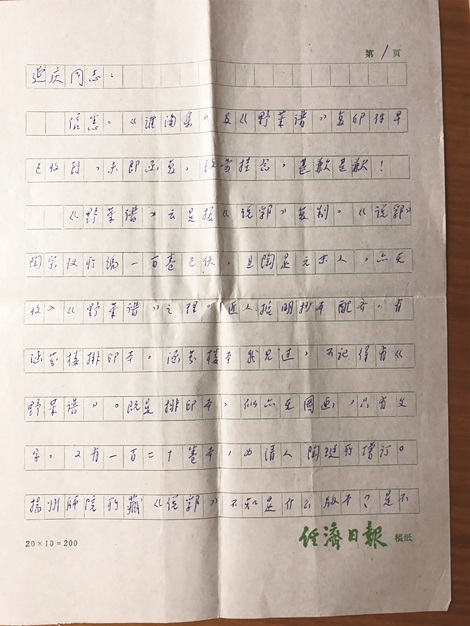 第1页
建庆同志：
信悉。《谁淘集》及《野菜谱》复印件早
已收到，未即函复，致劳挂念，甚歉甚歉！
《野菜谱》云是据《说郛》复制。《说郛》
陶宗仪所编一百卷已佚，且陶是元末人，亦无
收入《野菜谱》之理。近人据明抄本配齐，有
涵芬楼排印本，涵芬楼本我见过，不记得有《
野菜谱》。既是排印本，似亦无图画，只有文
字。又有一百二十卷本，为清人陶珽所增订。
扬州师院所藏《说郛》不知是什么版本？是不
20×10=200
经济日报 稿纸